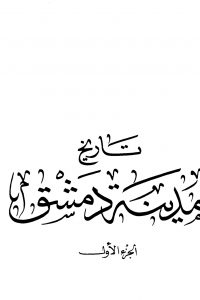 تاريخ
مدينة دمشق
الجزء الأول